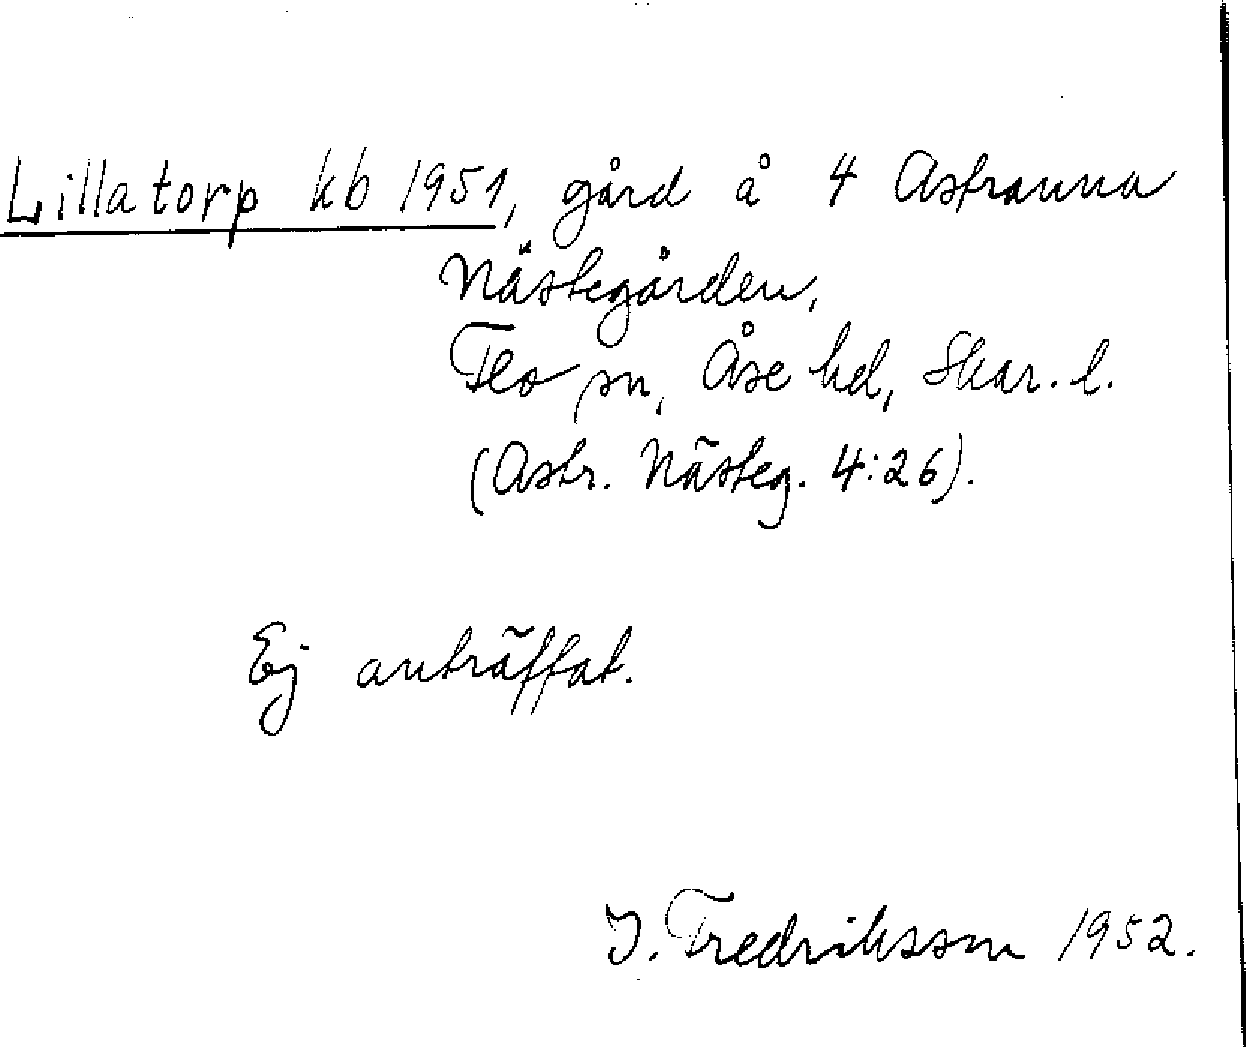 Lillatorp kb 1951, gård å 4 Astranna
Nästegården,
Flo sn, Åse hd, Skar. l.
(Astr. Nästeg. 4:26).
Ej anträffat.
I. Fredriksson 1952.